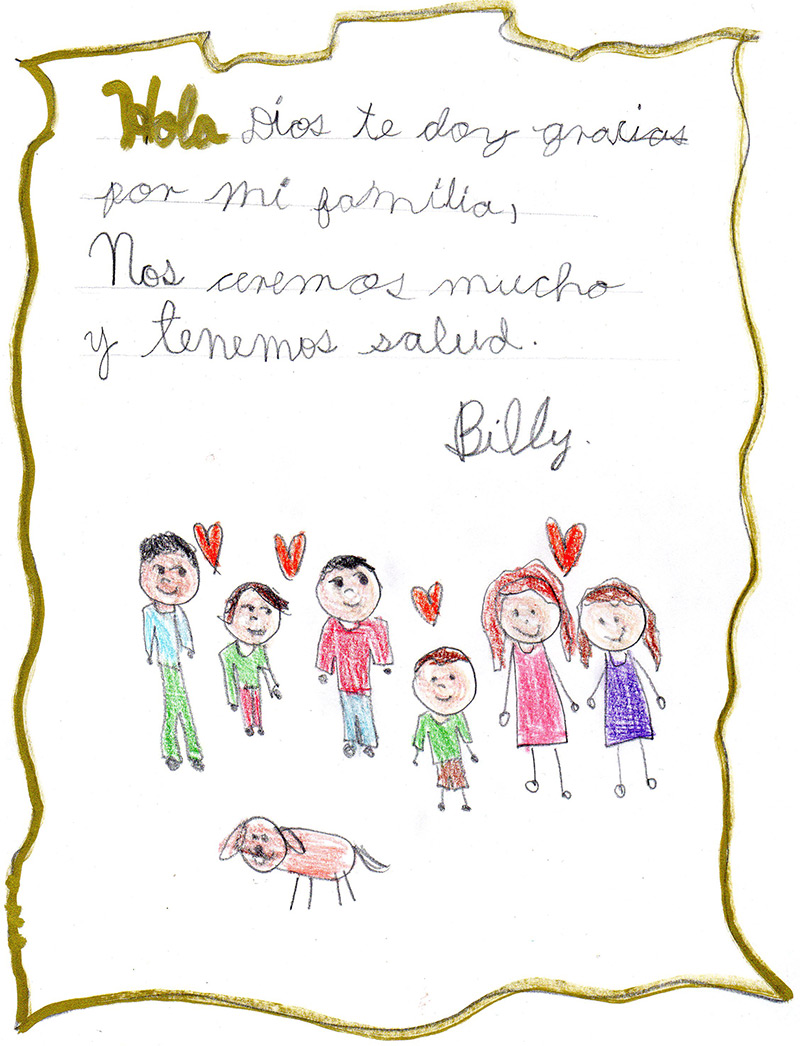 Hola Dios te doy gracias
por mi familia,
Nos ceremos mucho
y tenemos salud.
Billy.